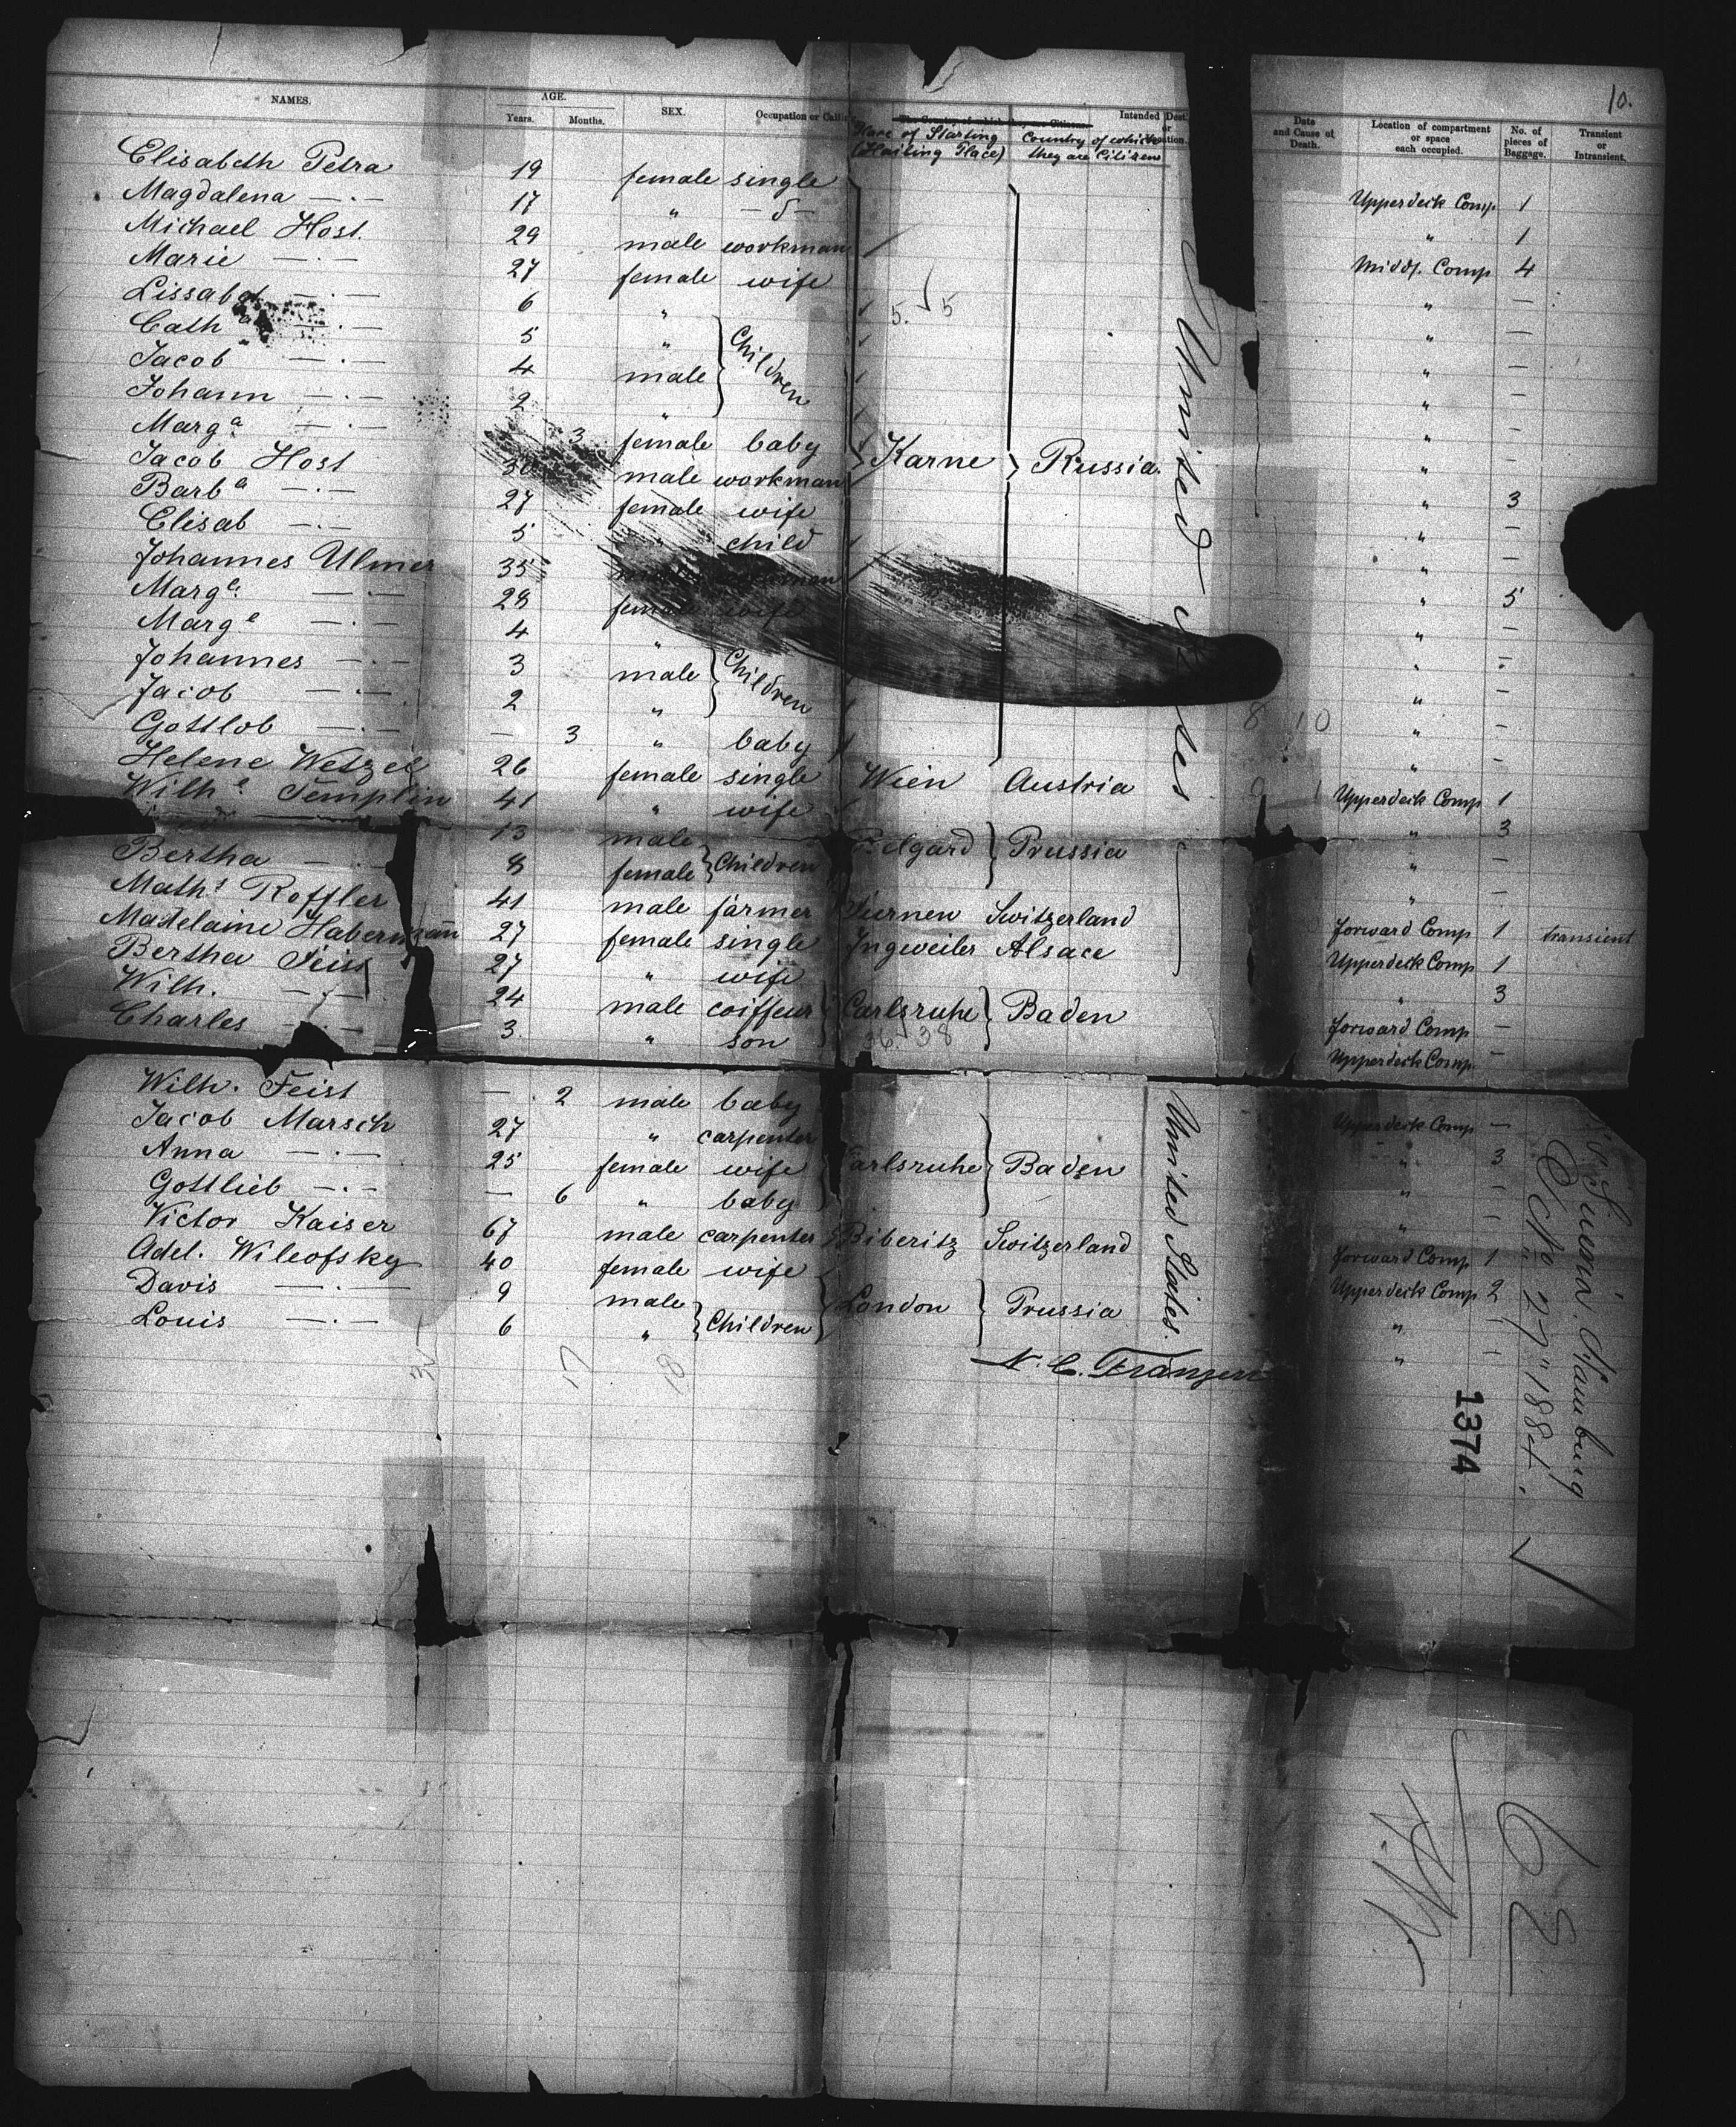 10.
NAMES. AGE. Years. Months. SEX. Occupation or Calling The Country of which they are Citizens Intended Destination. Date and Cause of Death. Location of compartment or space each occupied. No. of pieces of Baggage. Transient or Intransient.
Place of Starting (Hailing Place) Country of which they are Citizens
Elisabeth Petra 19 female single Upperdeck Comp. 1
Magdalena —·— 17 " — 5 — " 1
Michael Host 29 male workman Middl. Comp 4
Marie —·— 27 female wife " —
Lissabet —·— 6 " " —
5. √5
Cath a —·— 5 " Children " —
Jacob —·— 4 male " —
Johann —·— 2 " " —
Marg a —·— 3 female baby " —
Jacob Host 30 male workman Karne Russia. " 3
Barb a —·— 27 female wife " —
Elisab —·— 5 " child " —
Johannes Ulmer 35 workman " 5
Marg a —·— 28 female wife " —
Marg e —·— 4 " " -
Johannes —·— 3 male Children " —
Jacob —·— 2 " " —
8 10
Gottlob —·— — 3 " baby " —
United States
Helene Wetzel 26 female single Wien Austria Upperdeck Comp 1
Wilh e Templin 41 " wife " 3
13 male Belgard Prussia " —
Bertha —·— 8 female Children " —
Math s Roffler 41 male farmer Switzerland forward Comp 1 transient
Madelaine Habermann 27 female single Ingweiler Alsace Upperdeck Comp 1
Bertha Feist 27 " wife " 3
Wilh. —·— 24 male coiffeur Carlsruhe Baden forward Comp —
Charles —·— 3. " son Upperdeck Comp. —
36 √38
Wilh. Feist — 2 male baby Upperdeck Comp —
Jacob Marsch 27 " carpenter " 3
Anna —·— 25 female wife Carlsruhe Baden " -
Gottlieb —·— — 6 " baby " -
Victor Kaiser 67 male carpenter Biberitz Switzerland forward Comp 1
Adel. Wileofsky 40 female wife Upperdeck Comp 2
Davis —·— 9 male London Prussia " -
Louis —·— 6 " Children " -
United States.
17 18
N. C. Franzen
Hamburg
Octo 27" 1884.
1374
62